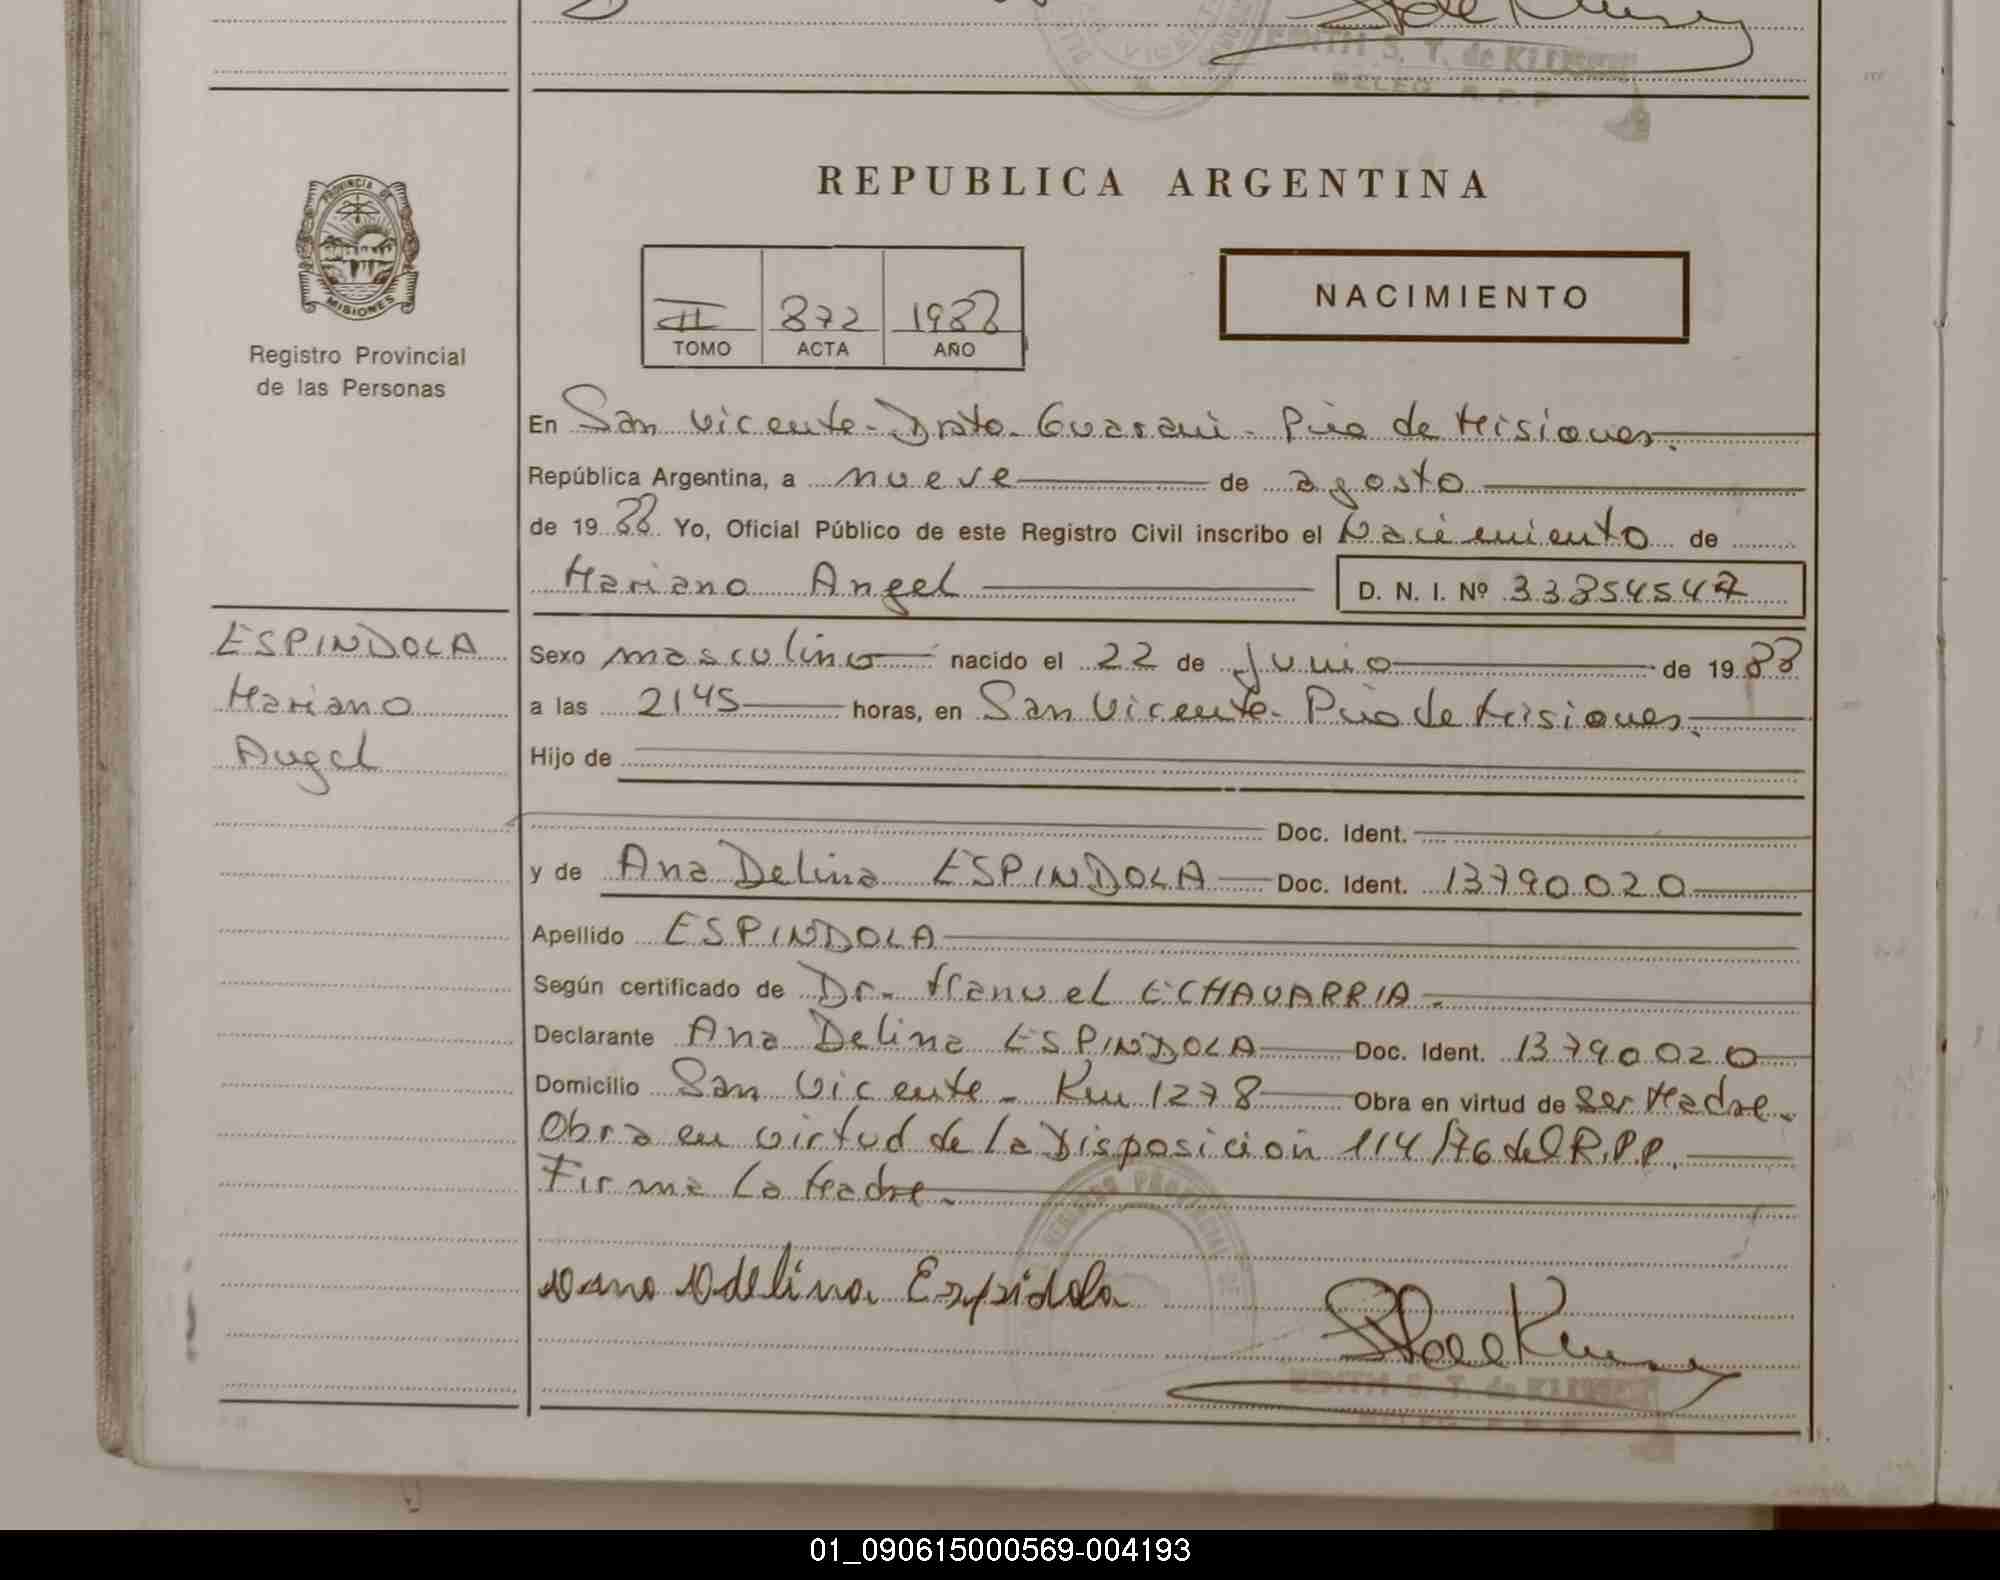 EDITH S. T. de KLUSKE
DELEG. R. P. P.
PROVINCIA DE
MISIONES
Registro Provincial
de las Personas
REPUBLICA ARGENTINA
II 872 1988
TOMO ACTA AÑO
NACIMIENTO
En San Vicente - Dpto. Guarani - Pcia de Misiones.
República Argentina, a nueve de agosto
de 1988 Yo, Oficial Público de este Registro Civil inscribo el Nacimiento de
Mariano Angel D. N. I. Nº 33854547
ESPINDOLA
Mariano
Angel
Sexo masculino nacido el 22 de Junio de 1988
a las 2145 horas, en San Vicente - Pcia de Misiones.
Hijo de
Doc. Ident.
y de Ana Delina ESPINDOLA Doc. Ident. 13790020
Apellido ESPINDOLA
Según certificado de Dr. Manuel ECHAVARRIA.
Declarante Ana Delina ESPINDOLA Doc. Ident. 13790020
Domicilio San Vicente - Km 1278 Obra en virtud de Ser Madre.
Obra en virtud de la Disposición 114/76 del R.P.P.
Firma la Madre.
Ana Delina Espidola
EDITH S. T. de KLUSKE
01_090615000569-004193